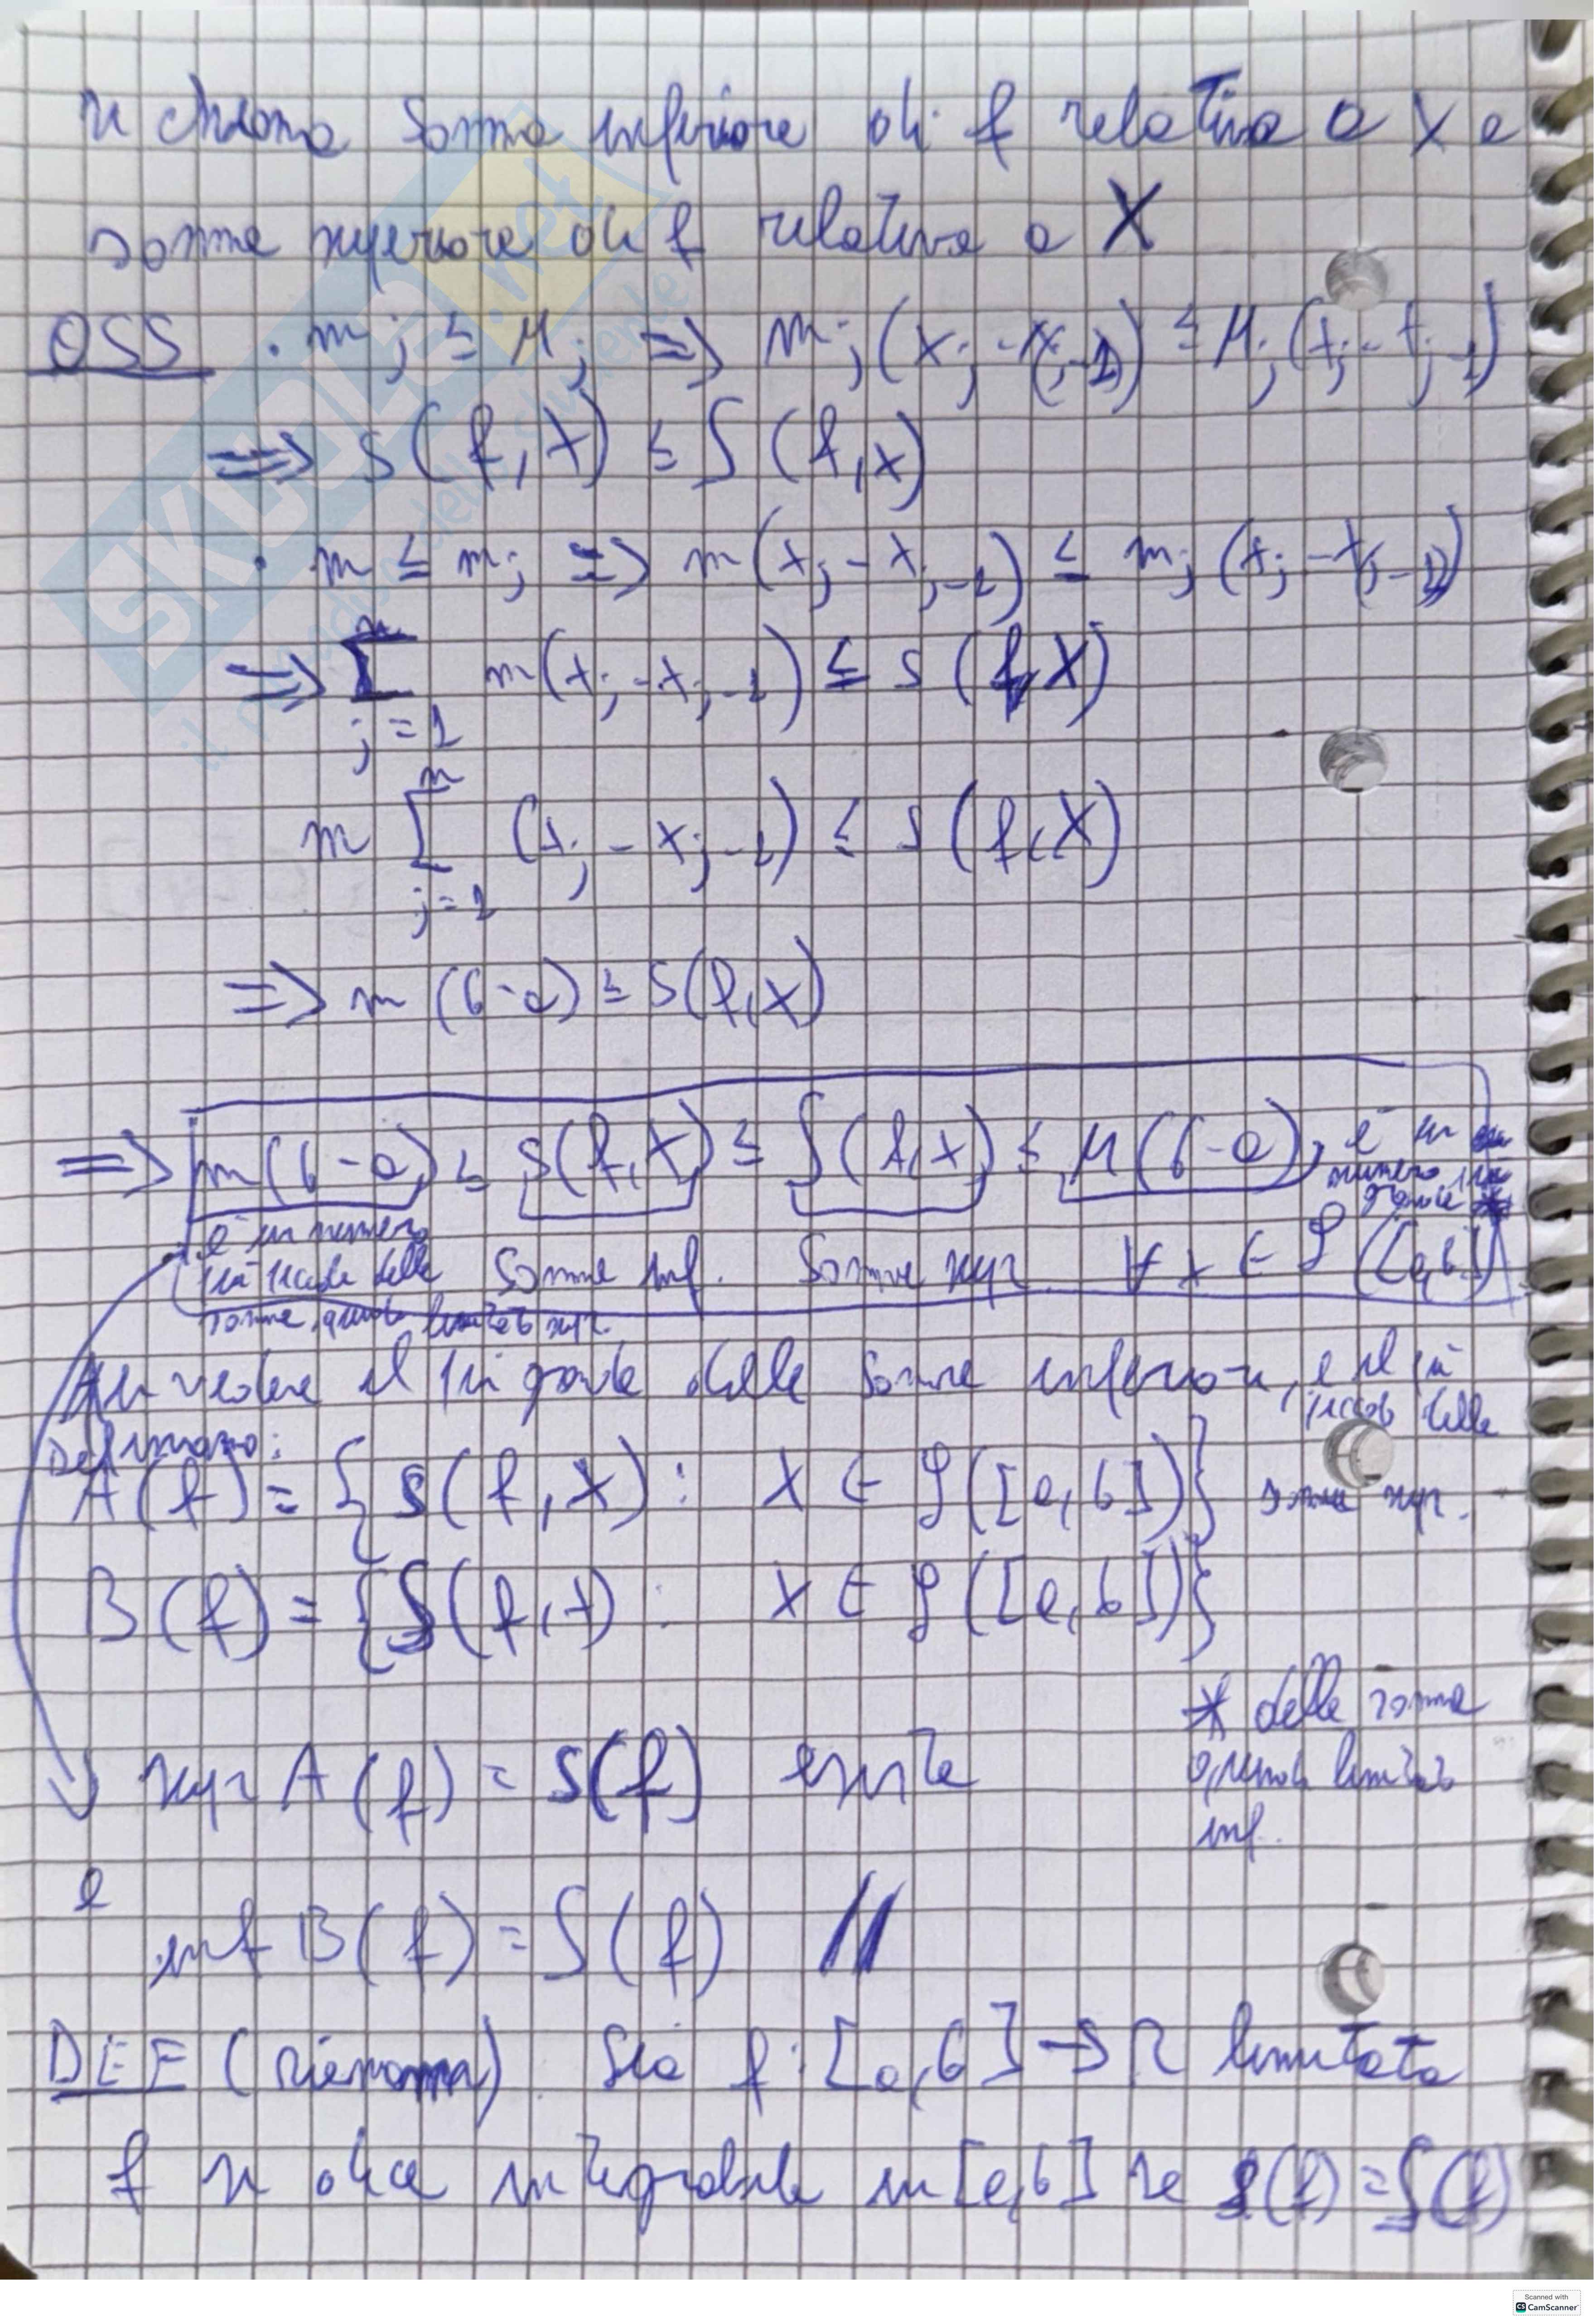 si chiama somma inferiore di f relativa a X e
somma superiore di f relativa a X
OSS · m_j ≤ M_j => m_j (x_j - x_{j-1}) ≤ M_j (x_j - x_{j-1})
=> s(f, X) ≤ S(f, X)
· m ≤ m_j => m(x_j - x_{j-1}) ≤ m_j (x_j - x_{j-1})
=> Σ_{j=1}^{n} m(x_j - x_{j-1}) ≤ s(f, X)
m Σ_{j=1}^{n} (x_j - x_{j-1}) ≤ s(f, X)
=> m (b-a) ≤ s(f, X)
=> m(b-a) ≤ s(f, X) ≤ S(f, X) ≤ M(b-a), è un
numero più
grande *
è un numero
più piccolo delle somme inf. somme sup. ∀ X ∈ P([a,b])
somme, quindi limitato sup.
vedere il più grande delle somme inferiori, e il più
piccolo delle
somme sup.
Definiamo:
A(f) = { s(f, X) : X ∈ P([a,b]) }
B(f) = { S(f, X) : X ∈ P([a,b]) }
* delle somme
quindi limitato
inf.
sup A(f) = s(f) esiste
e
inf B(f) = S(f) //
DEF (Riemann). Sia f: [a,b] -> R limitata
f si dice integrabile in [a,b] se s(f) = S(f)
SKUOLA.net
Scanned with
CS CamScanner